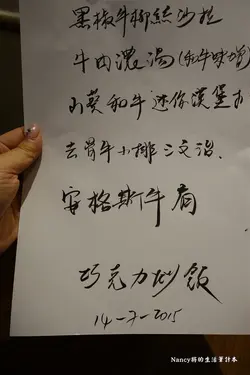 黑椒牛柳絲沙拉
牛肉濃湯(和牛味增)
山葵和牛迷你漢堡扒
去骨牛小排三文治、
安格斯牛肩
巧克力炒飯
14-7-2015
Nancy將的生活筆計本